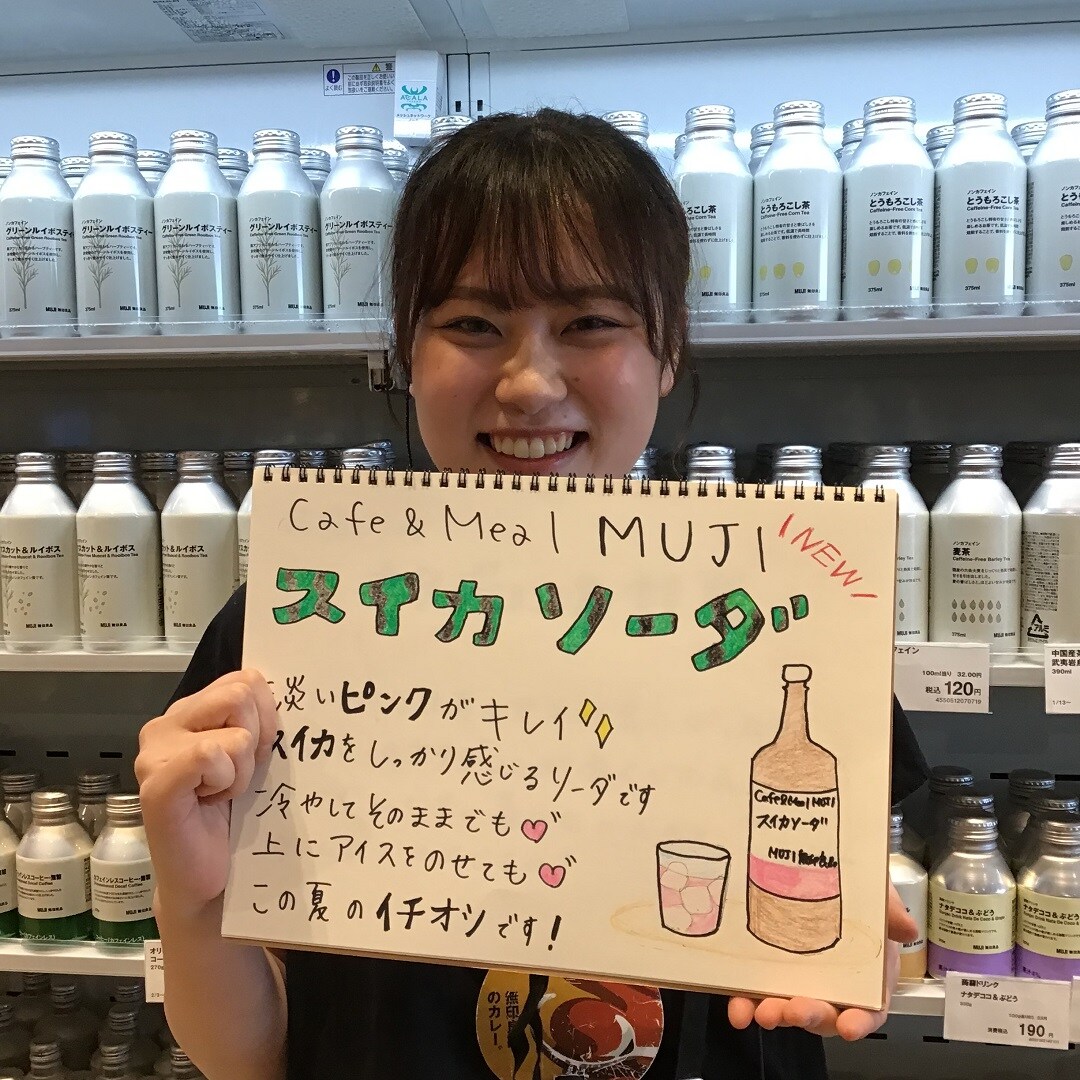 よく読む
ACALA
ノンカフェイン
グリーンルイボスティー
Caffeine-Free Green Rooibos Tea
375ml
MUJI 無印良品
ノンカフェイン
とうもろこし茶
Caffeine-Free Corn Tea
375ml
MUJI 無印良品
スカット&ルイボス
Caffeine-Free Muscat & Rooibos Tea
MUJI 無印良品
ノンカフェイン
麦茶
Caffeine-Free Barley Tea
375ml
MUJI 無印良品
アルミ
Cafe & Meal MUJI
NEW
スイカソーダ
淡いピンクがキレイ
スイカをしっかり感じるソーダです
冷やしてそのままでも
上にアイスをのせても
この夏のイチオシです!
Cafe&Meal MUJI
スイカソーダ
MUJI 無印良品
フェイン
100ml当り 32.00円
税込 120円
4550512070719
中国産茶
武夷岩
390ml
1/13〜
MUJI 無印良品
ナタデココ&ぶどう
蒟蒻ドリンク
ナタデココ&ぶどう
消費税込 190円
オリ
コー
270g
のカレー。